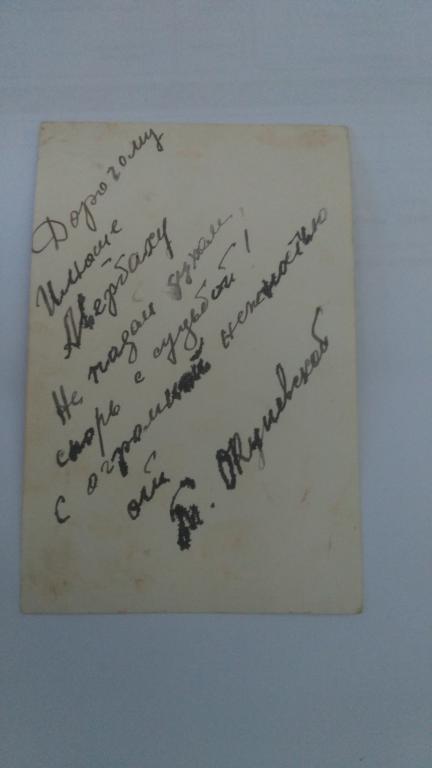 Дорогому
Илюше
Авербаху
Не падай духом,
спорь с судьбой!
С огромной нежностью
от
Т. Окуневской